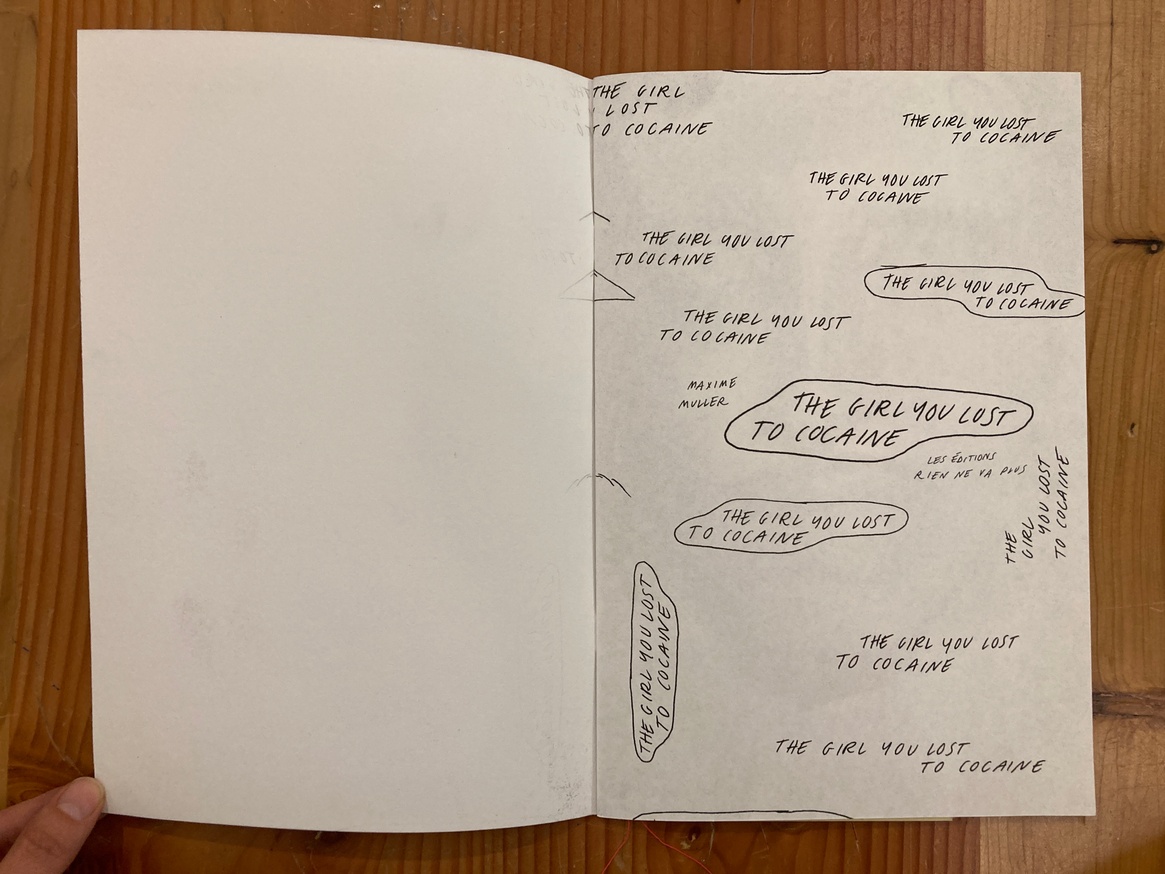 THE GIRL
LOST
TO COCAINE
THE GIRL YOU LOST
TO COCAINE
THE GIRL YOU LOST
TO COCAINE
THE GIRL YOU LOST
TO COCAINE
THE GIRL YOU LOST
TO COCAINE
THE GIRL YOU LOST
TO COCAINE
MAXIME
MULLER
THE GIRL YOU LOST
TO COCAINE
LES ÉDITIONS
RIEN NE VA PLUS
THE
GIRL
YOU LOST
TO COCAINE
THE GIRL YOU LOST
TO COCAINE
THE GIRL YOU LOST
TO COCAINE
THE GIRL YOU LOST
TO COCAINE
THE GIRL YOU LOST
TO COCAINE